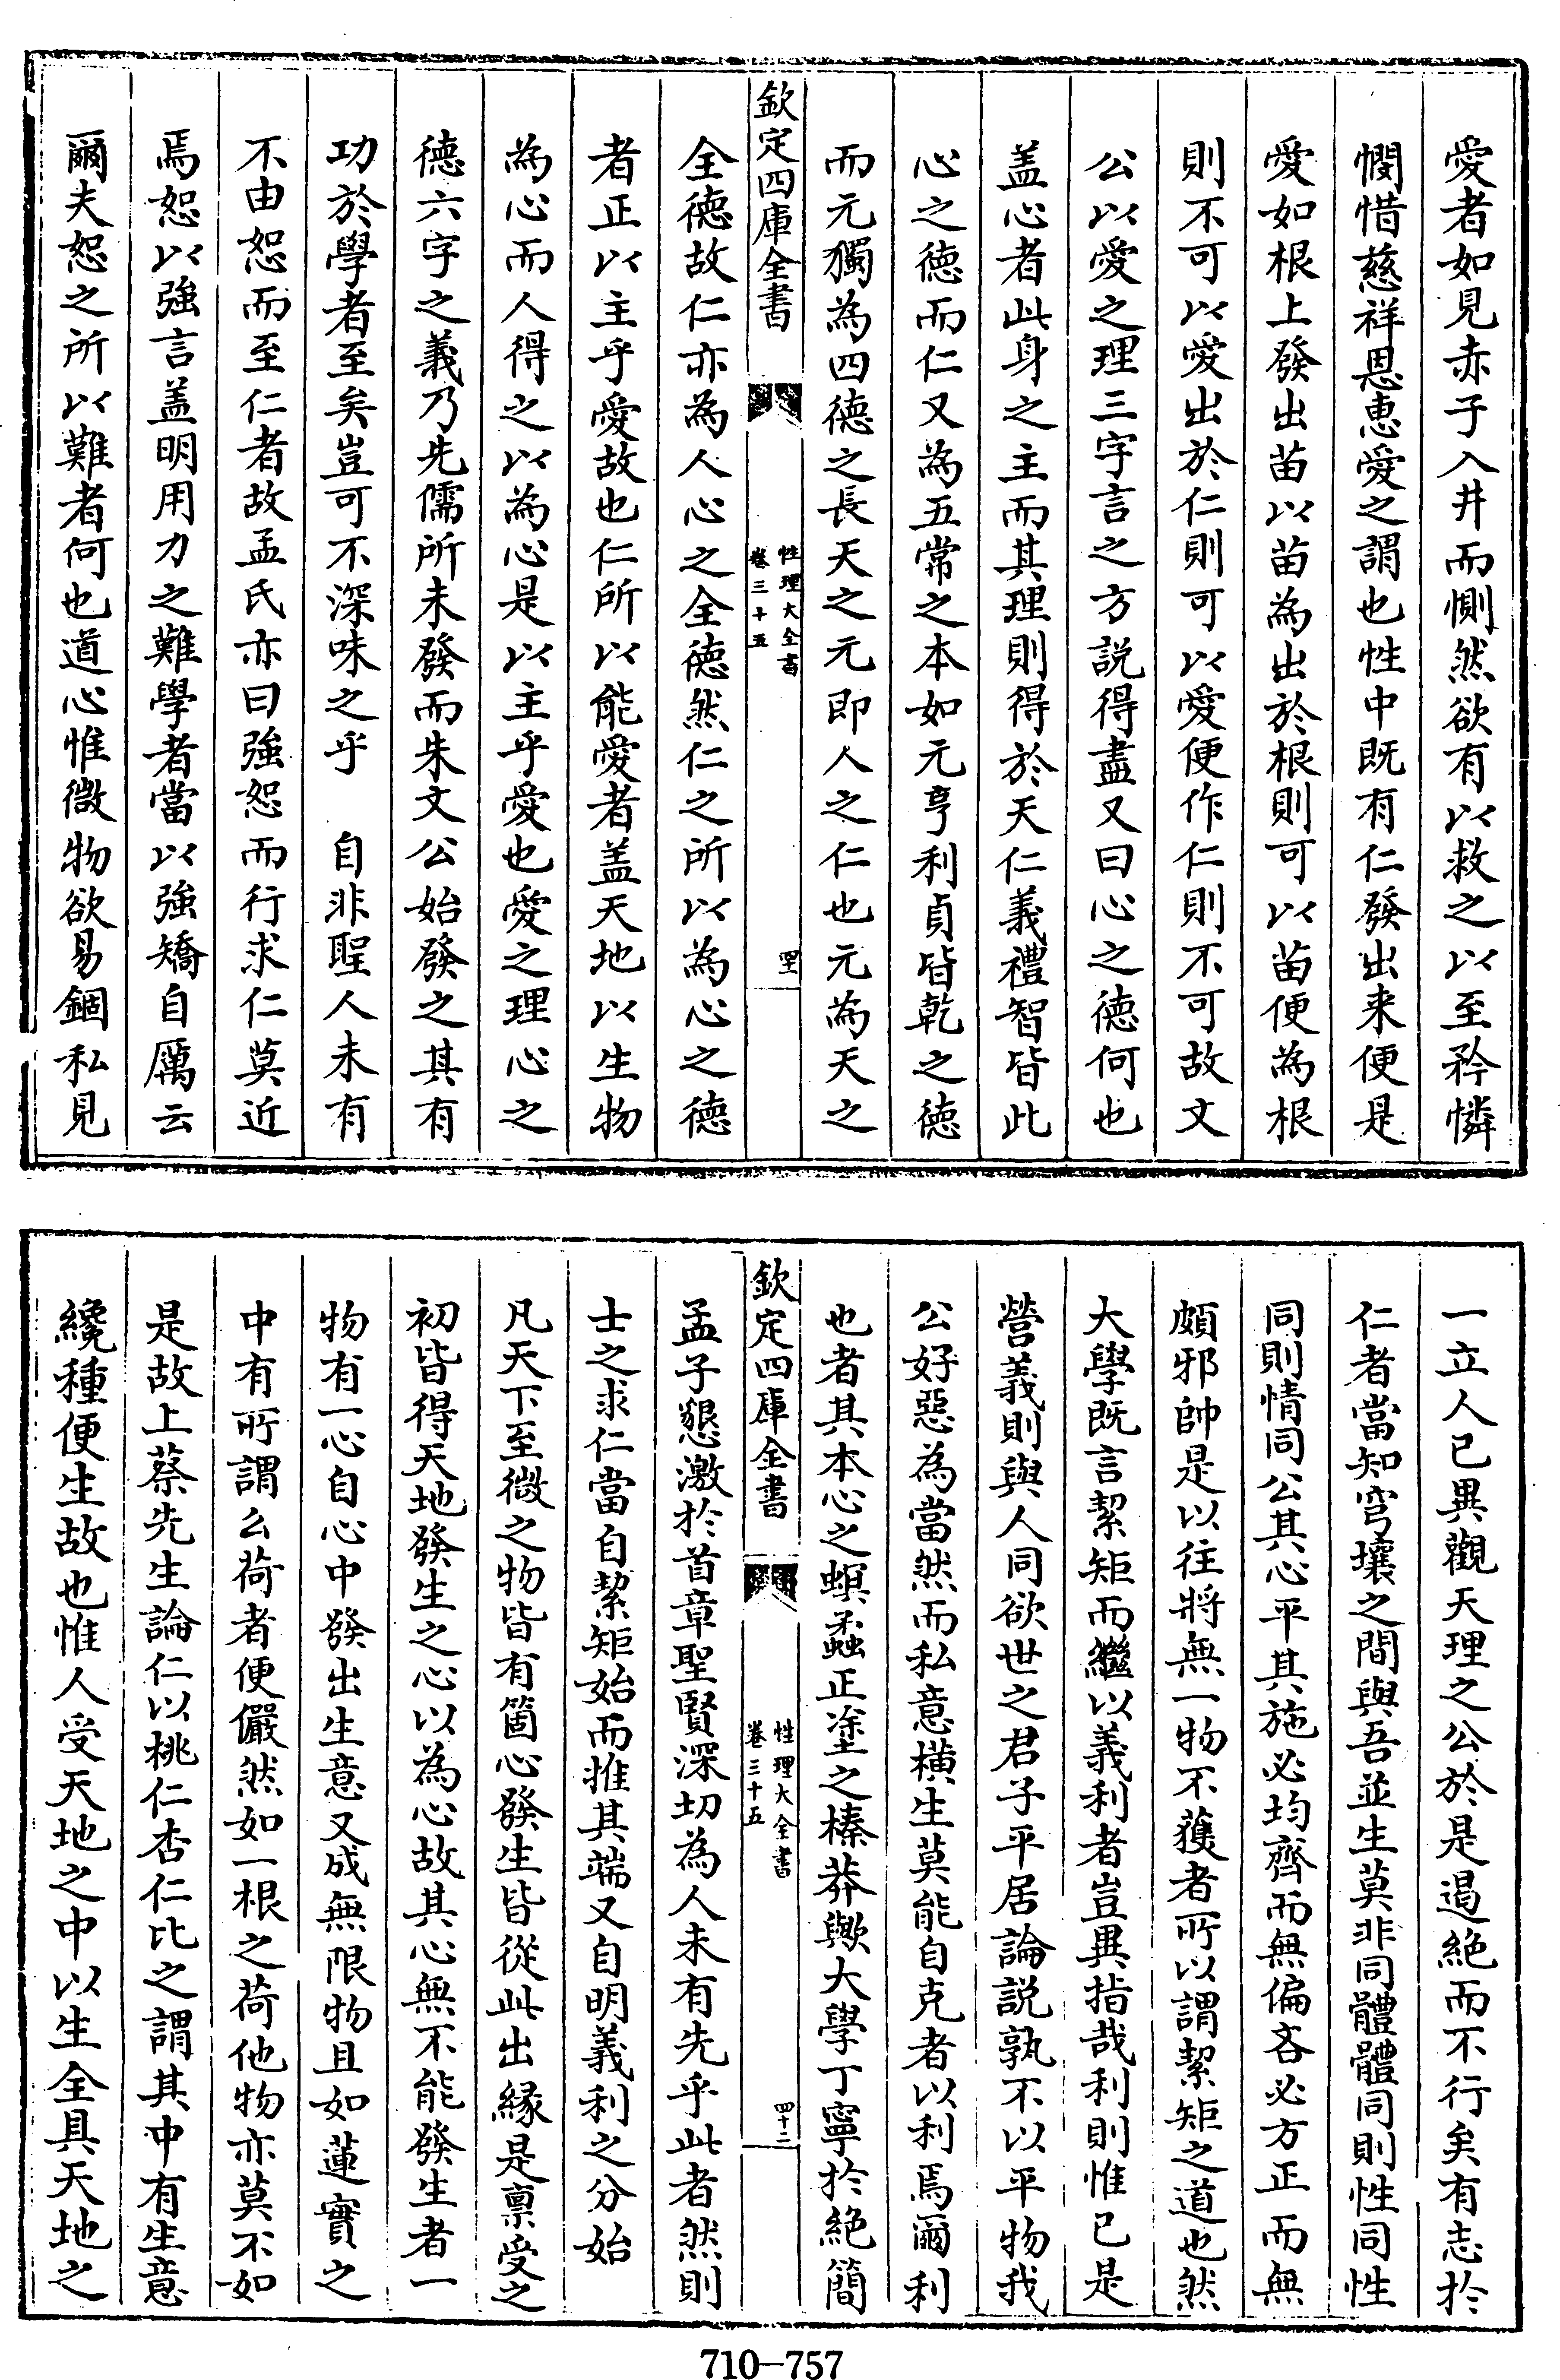 愛者如見赤子入井而惻然欲有以救之以至矜憐
憫惜慈祥恩恵愛之謂也性中既有仁發出来便是
愛如根上發出苗以苗為出於根則可以苗便為根
則不可以愛出於仁則可以愛便作仁則不可故文
公以愛之理三字言之方説得盡又曰心之徳何也
盖心者此身之主而其理則得於天仁義禮智皆此
心之徳而仁又為五常之本如元亨利貞皆乾之徳
而元獨為四徳之長天之元即人之仁也元為天之
欽定四庫全書
性理大全書
卷三十五
四十一
全徳故仁亦為人心之全徳然仁之所以為心之徳
者正以主乎愛故也仁所以能愛者盖天地以生物
為心而人得之以為心是以主乎愛也愛之理心之
徳六字之義乃先儒所未發而朱文公始發之其有
功於學者至矣豈可不深味之乎　自非聖人未有
不由恕而至仁者故孟氏亦曰強恕而行求仁莫近
焉恕以強言盖明用力之難學者當以強矯自厲云
爾夫恕之所以難者何也道心惟微物欲易錮私見
一立人己異觀天理之公於是遏絶而不行矣有志於
仁者當知穹壤之間與吾並生莫非同體體同則性同性
同則情同公其心平其施必均齊而無偏吝必方正而無
頗邪帥是以往將無一物不獲者所以謂絜矩之道也然
大學既言絜矩而繼以義利者豈異指哉利則惟己是
營義則與人同欲世之君子平居論説孰不以平物我
公好惡為當然而私意橫生莫能自克者以利焉爾利
也者其本心之螟蟊正塗之榛莽歟大學丁寧於絶簡
欽定四庫全書
性理大全書
卷三十五
四十二
孟子懇激於首章聖賢深切為人未有先乎此者然則
士之求仁當自絜矩始而推其端又自明義利之分始
凡天下至微之物皆有箇心發生皆從此出緣是禀受之
初皆得天地發生之心以為心故其心無不能發生者一
物有一心自心中發出生意又成無限物且如蓮實之
中有所謂么荷者便儼然如一根之荷他物亦莫不如
是故上蔡先生論仁以桃仁杏仁比之謂其中有生意
纔種便生故也惟人受天地之中以生全具天地之
710—757